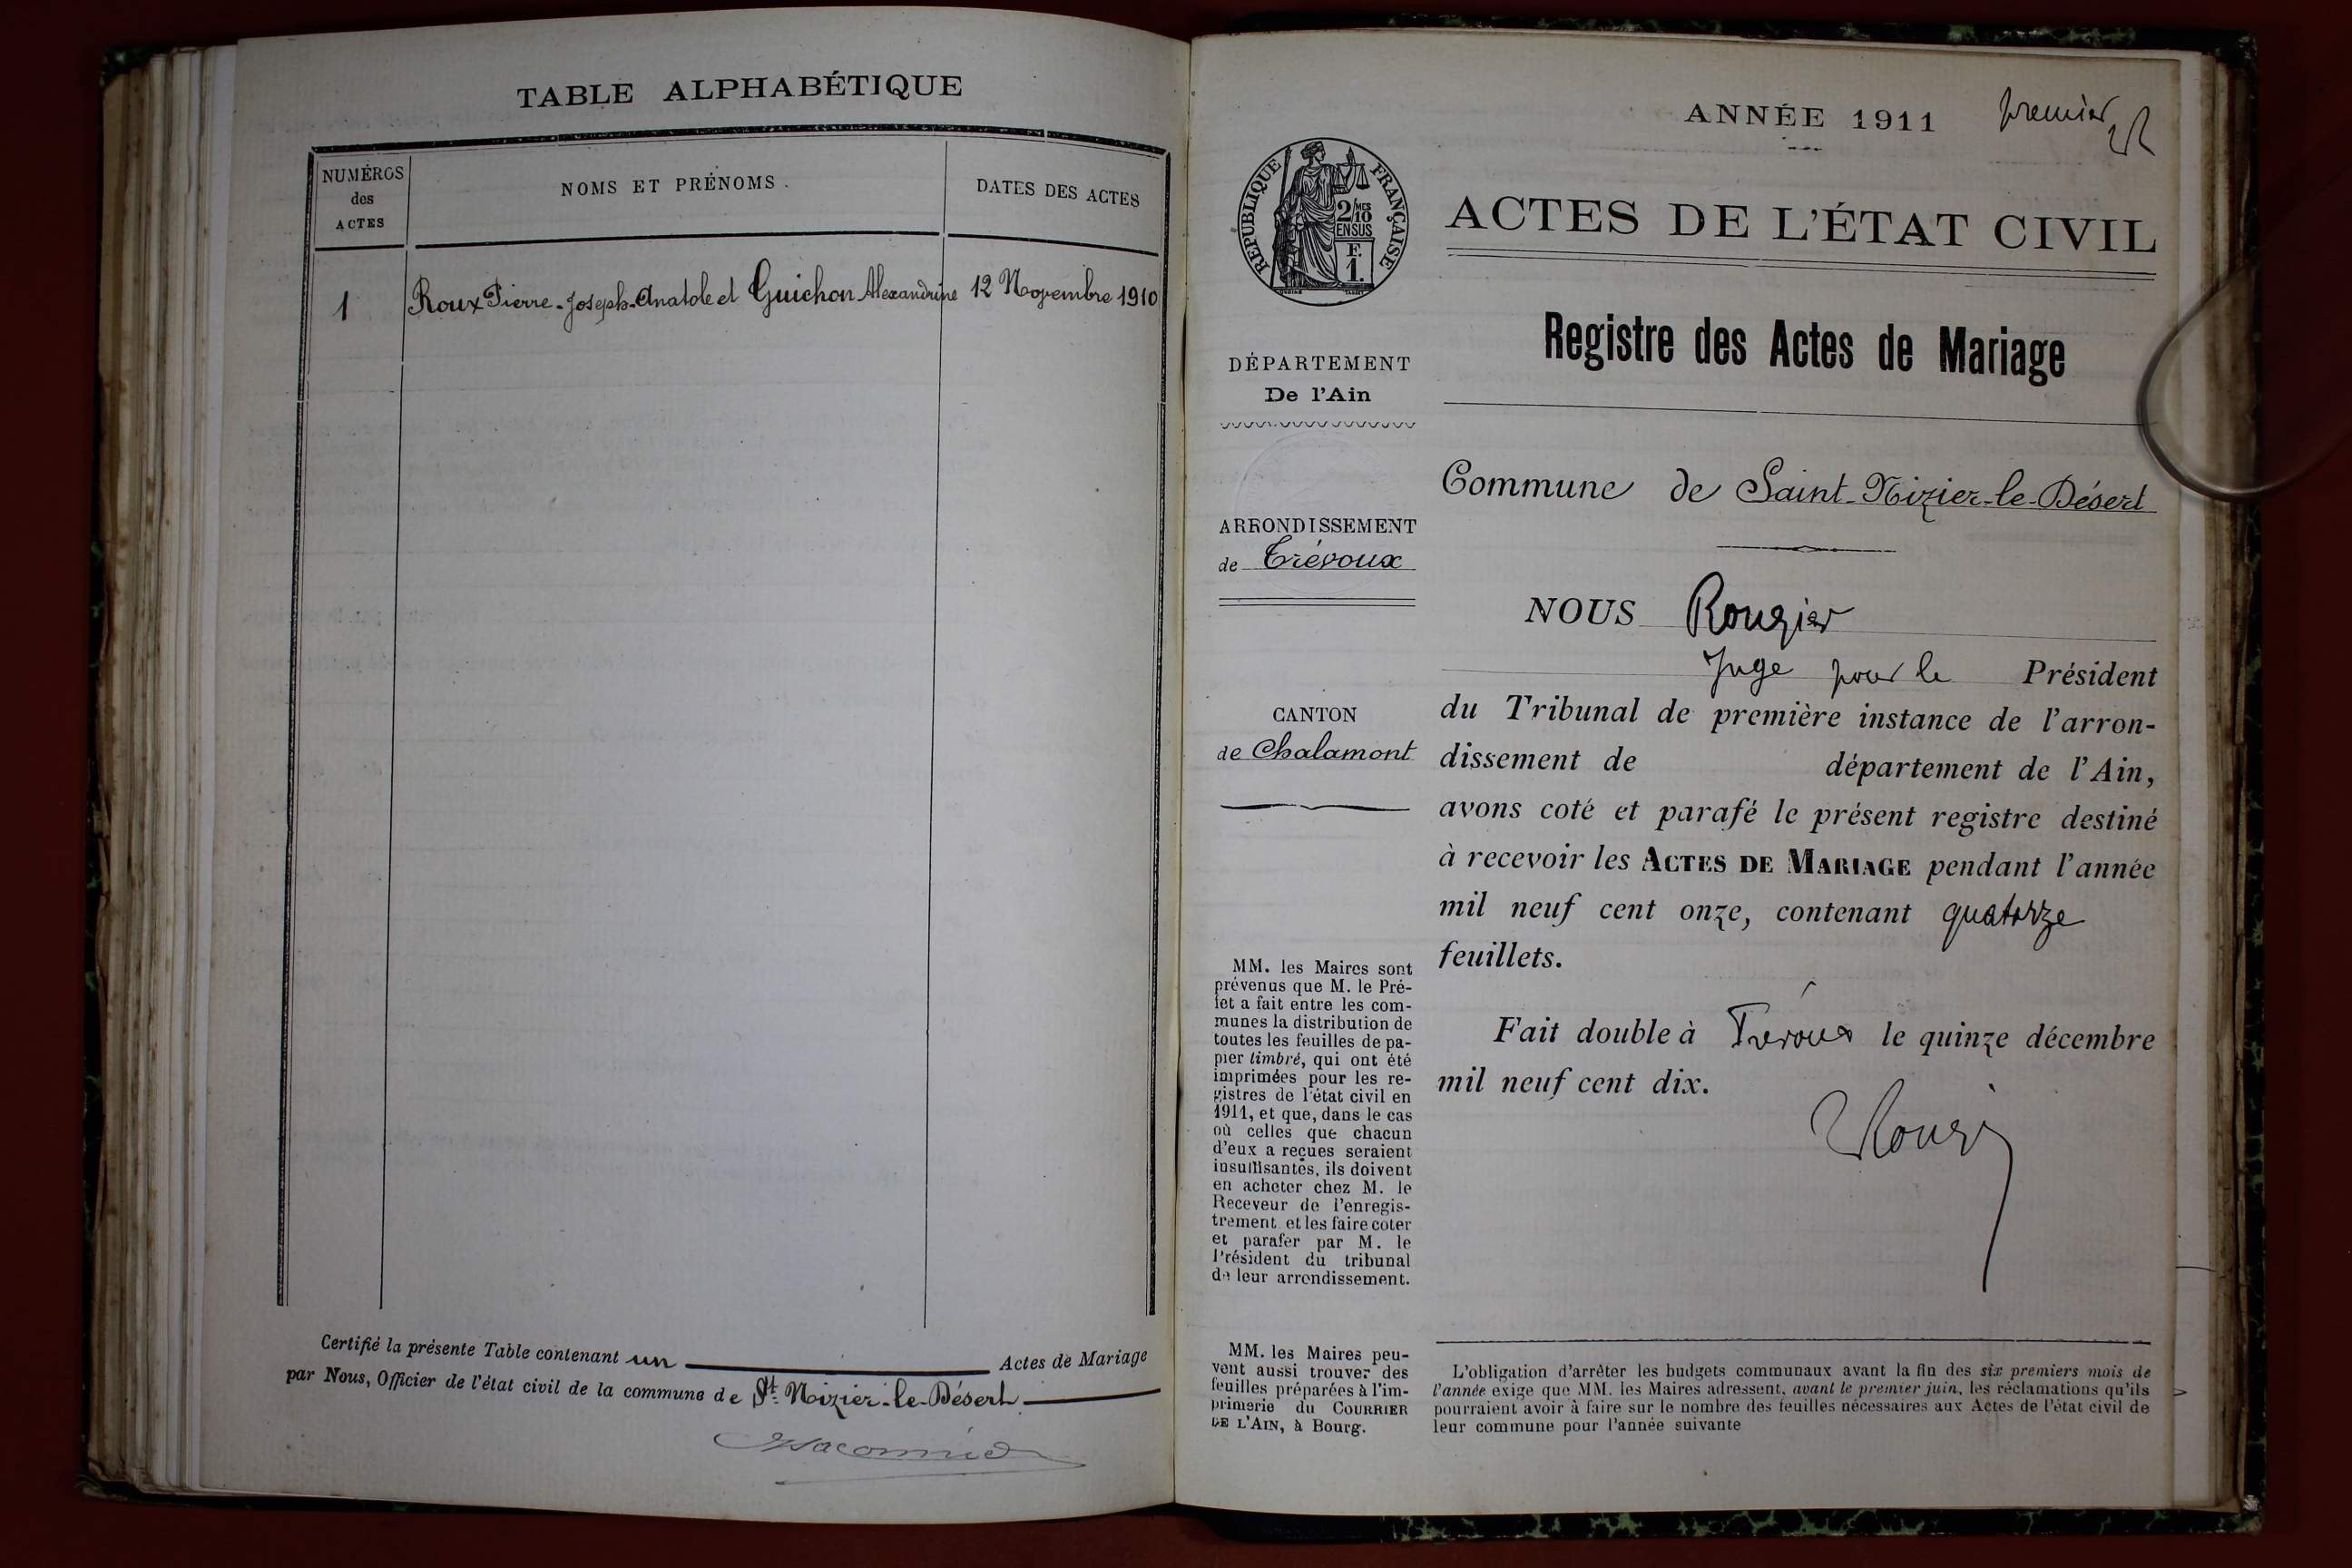 TABLE ALPHABÉTIQUE
NUMÉROS
des
ACTES
NOMS ET PRÉNOMS.
DATES DES ACTES
1 Roux Pierre-Joseph-Anatole et Guichon Alexandrine 12 Novembre 1910
Certifié la présente Table contenant un Actes de Mariage
par Nous, Officier de l'état civil de la commune de St-Nizier-le-Désert
ANNÉE 1911 premier
RÉPUBLIQUE FRANÇAISE
2/10 MES
EN SUS
F.
1.
ACTES DE L'ÉTAT CIVIL
Registre des Actes de Mariage
DÉPARTEMENT
De l'Ain
ARRONDISSEMENT
de Trévoux
CANTON
de Chalamont
MM. les Maires sont
prévenus que M. le Pré-
fet a fait entre les com-
munes la distribution de
toutes les feuilles de pa-
pier timbré, qui ont été
imprimées pour les re-
gistres de l'état civil en
1911, et que, dans le cas
où celles que chacun
d'eux a reçues seraient
insuffisantes, ils doivent
en acheter chez M. le
Receveur de l'enregis-
trement et les faire coter
et parafer par M. le
Président du tribunal
de leur arrondissement.
MM. les Maires peu-
vent aussi trouver des
feuilles préparées à l'im-
primerie du COURRIER
DE L'AIN, à Bourg.
Commune de Saint-Nizier-le-Désert
NOUS Rougier
Juge pour le Président
du Tribunal de première instance de l'arron-
dissement de département de l'Ain,
avons coté et parafé le présent registre destiné
à recevoir les ACTES DE MARIAGE pendant l'année
mil neuf cent onze, contenant quatorze
feuillets.
Fait double à Trévoux le quinze décembre
mil neuf cent dix.
L'obligation d'arrêter les budgets communaux avant la fin des six premiers mois de
l'année exige que MM. les Maires adressent, avant le premier juin, les réclamations qu'ils
pourraient avoir à faire sur le nombre des feuilles nécessaires aux Actes de l'état civil de
leur commune pour l'année suivante